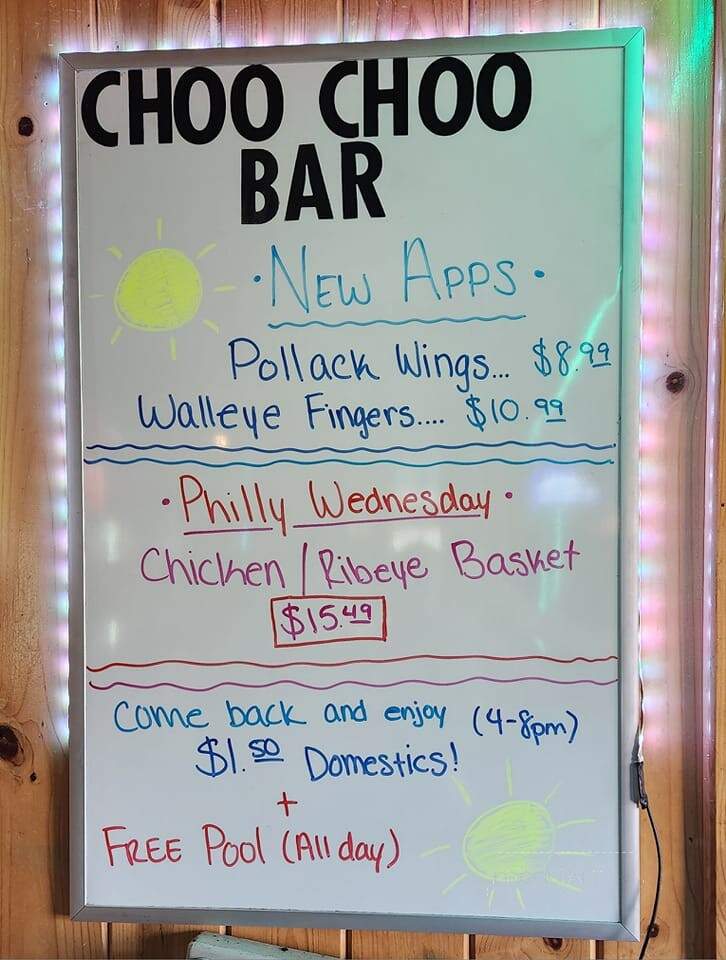 CHOO CHOO
BAR
• New Apps •
Pollack Wings... $8.99
Walleye Fingers.... $10.99
• Philly Wednesday •
Chicken / Ribeye Basket
$15.49
Come back and enjoy (4-8pm)
$1.50 Domestics!
+
FREE Pool (All day)